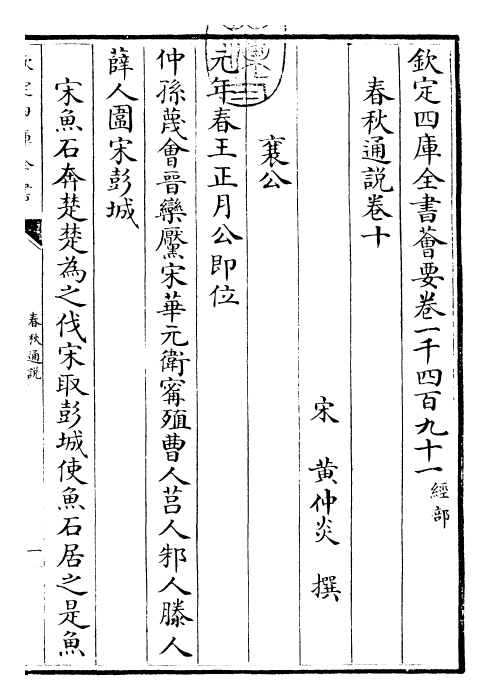 欽定四庫全書薈要卷一千四百九十一經部
春秋通說卷十
宋 黃仲炎 撰
襄公
元年春王正月公即位
仲孫蔑會晉欒黶宋華元衛甯殖曹人莒人邾人滕人
薛人圍宋彭城
宋魚石奔楚楚為之伐宋取彭城使魚石居之是魚
春秋通說
一